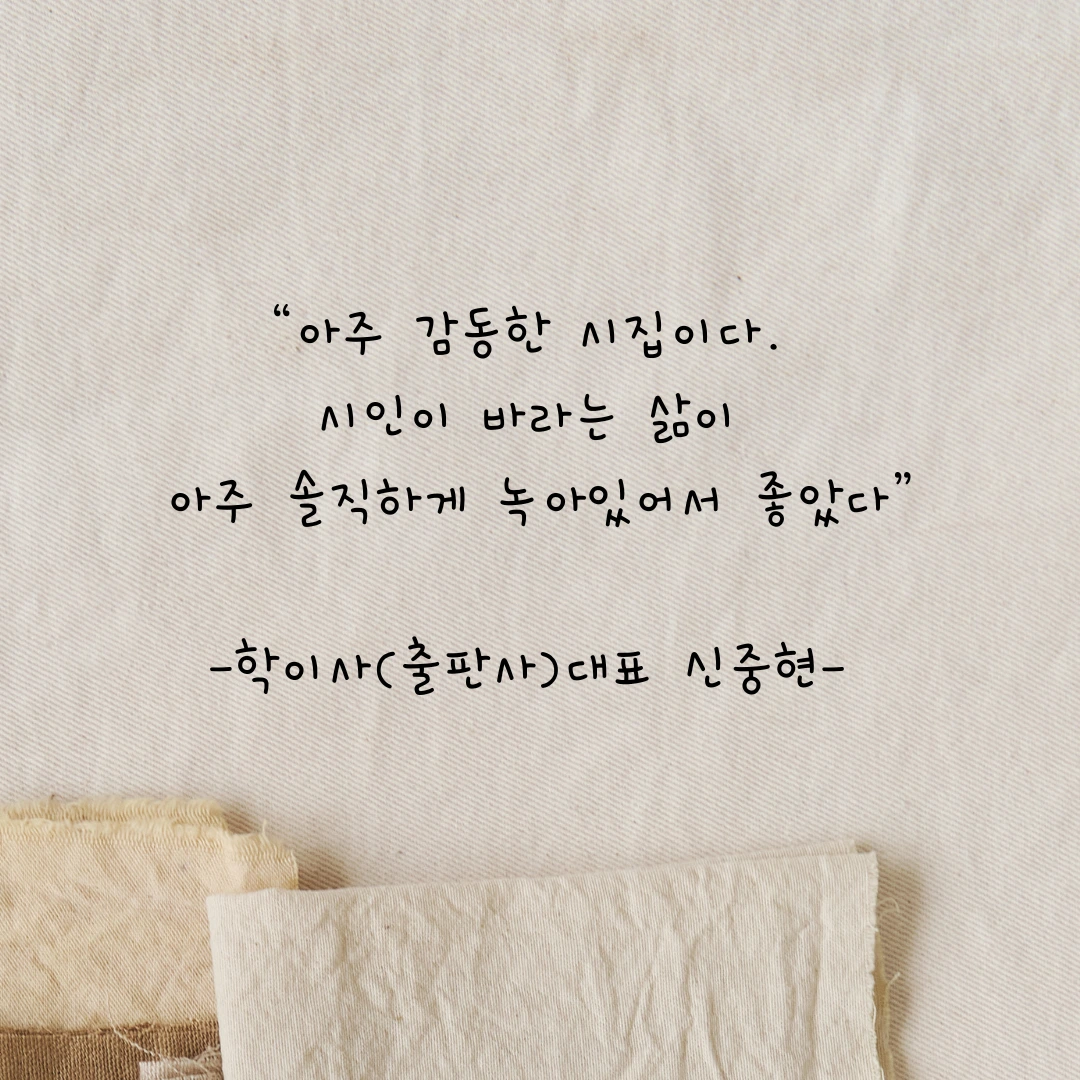 “아주 감동한 시집이다.
시인이 바라는 삶이
아주 솔직하게 녹아있어서 좋았다”
-학이사(출판사)대표 신중현-